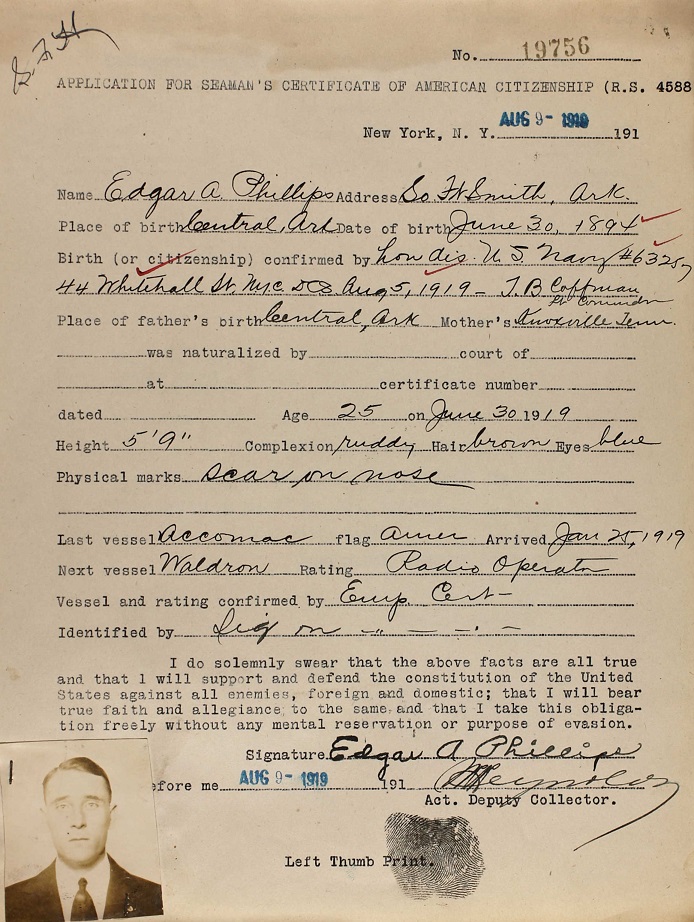 No. 19756
APPLICATION FOR SEAMAN'S CERTIFICATE OF AMERICAN CITIZENSHIP (R.S. 4588
New York, N. Y. AUG 9- 1919 191
Name Edgar A. Phillips Address So. Ft Smith, Ark.
Place of birth Central, Ark Date of birth June 30, 1894
Birth (or citizenship) confirmed by hon dis. U.S. Navy #63257
44 Whitehall St. N.Y.C. Aug 5, 1919 - J. B Coffman
Lt Commander
Place of father's birth Central, Ark Mother's Knoxville Tenn.
was naturalized by court of
at certificate number
dated Age 25 on June 30 1919
Height 5'9" Complexion ruddy Hair brown Eyes blue
Physical marks scar on nose
Last vessel Accomac flag Amer Arrived Jan 25, 1919
Next vessel Waldron Rating Radio Operator
Vessel and rating confirmed by Emp. Cert-
Identified by Sig on " - " -
I do solemnly swear that the above facts are all true
and that I will support and defend the constitution of the United
States against all enemies, foreign and domestic; that I will bear
true faith and allegiance to the same and that I take this obliga-
tion freely without any mental reservation or purpose of evasion.
Signature Edgar A Phillips
efore me AUG 9- 1919 191 Reynolds
Act. Deputy Collector.
Left Thumb Print.